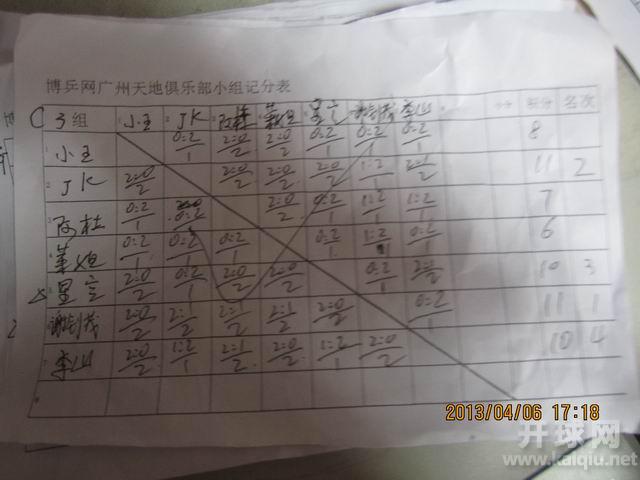 博乒网广州天地俱乐部小组记分表
3组 小王 JK 阿杜 星空 李山 积分 名次
1 小王 0:2/1 2:0/2 2:0/2 0:2/1 0:2/1 0:2/1 8
2 JK 2:0/2 2:0/2 2:0/2 2:0/2 1:2/1 2:1/2 11 2
3 阿杜 0:2/1 0:2/1 2:0/2 0:2/1 1:2/1 1:2/1 7
4 0:2/1 0:2/1 0:2/1 0:2/1 1:2/1 0:2/1 6
5 星空 2:0/2 0:2/1 2:0/2 2:0/2 0:2/1 2:1/2 10 3
6 2:0/2 2:1/2 2:1/2 2:1/2 2:0/2 0:2/1 11 1
7 李山 2:0/2 1:2/1 2:1/2 2:0/2 1:2/1 2:0/2 10 4
8
2013/04/06 17:18
开球网
www.kaiqiu.net